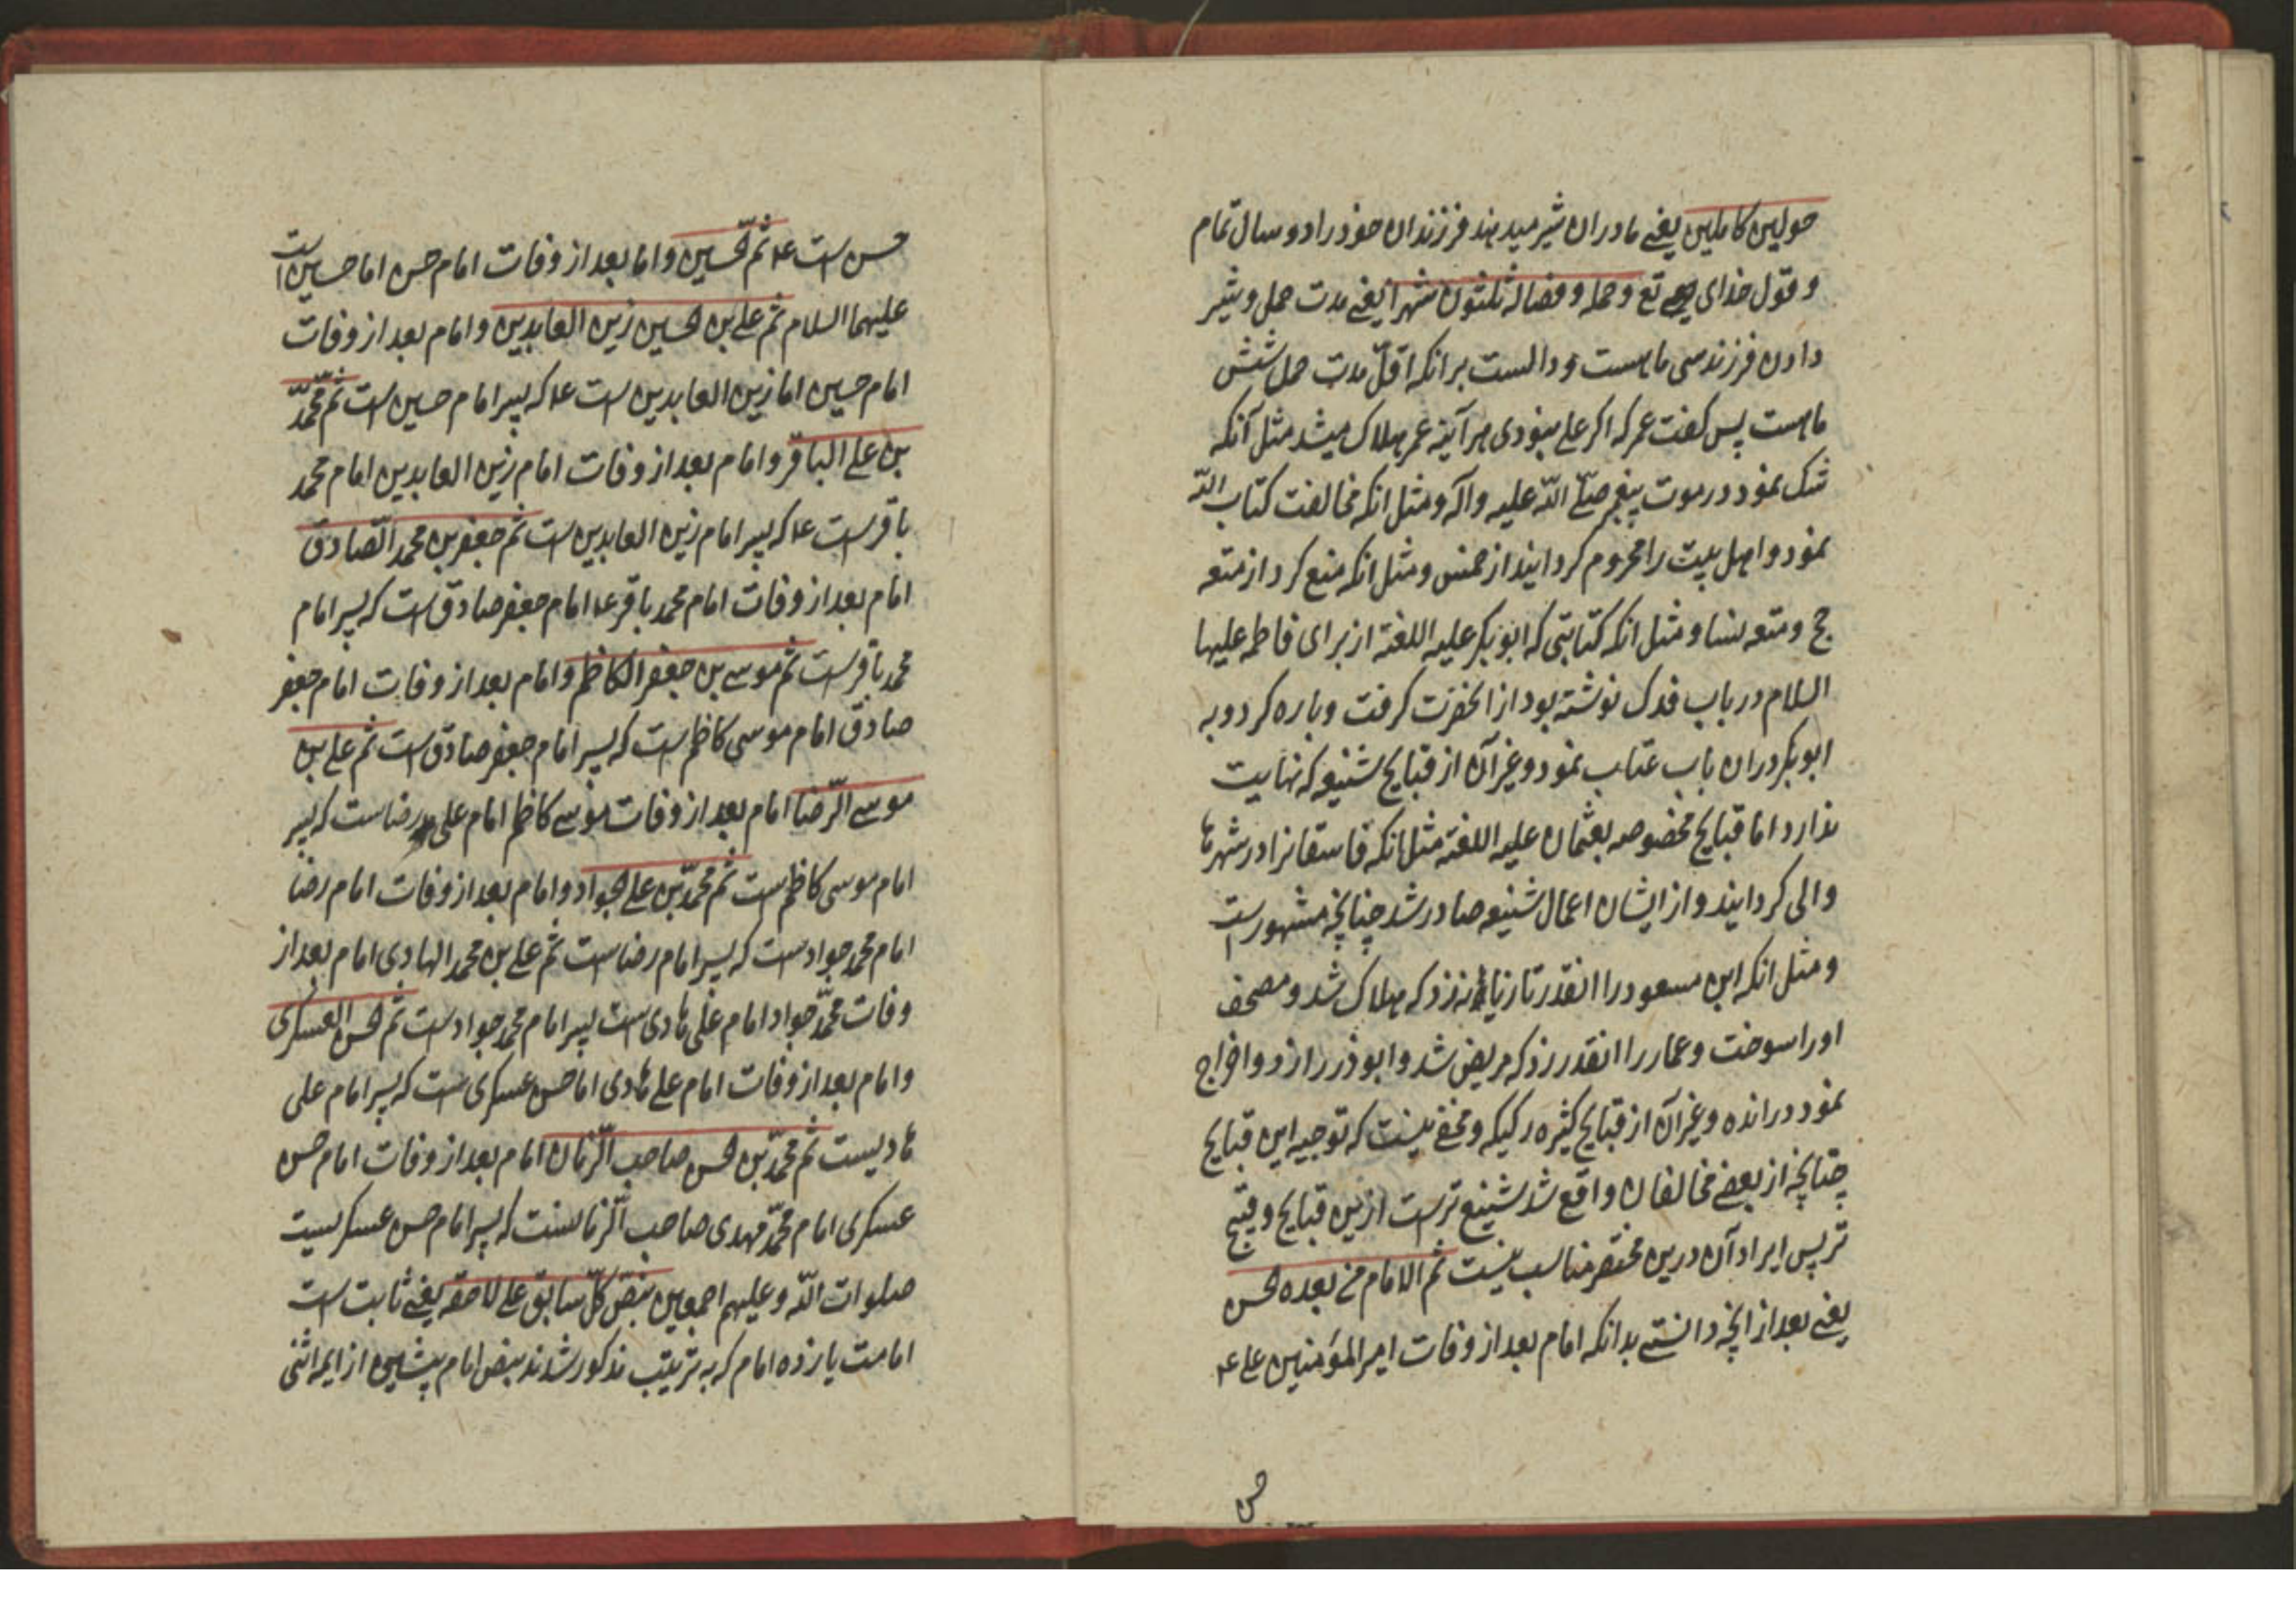 حولین کاملین یعنے مادران شیر میدهند فرزندان خود را دو سال تمام
و قول خدای تع و حمله و فصاله ثلثون شهرا یعنے مدت حمل و شیر
دادن فرزند سی ماهست و دالست برانکه اقلّ مدت حمل شش
ماهست پس کفت عمر که اکر علے نبودی هر آینه عمر هلاک میشد مثل آنکه
شک نمود در موت پیغمبر صلّے اللّه علیه وآله و مثل انکه مخالفت کتاب اللّه
نمود و اهل بیت را محروم کردانید از خمس و مثل انکه منع کرد از متعه
حج و متعه نسا و مثل انکه کتابتی که ابو بکر علیه اللعنة از برای فاطمه علیها
السلام در باب فدک نوشته بود از انحضرت کرفت و پاره کرد و به
ابو بکر دران باب عتاب نمود و غیر آن از قبایح شنیعه که نهایت
ندارد اما قبایح مخصوصه بعثمان علیه اللعنة مثل انکه فاسقانرا در شهرها
والی کردانید و از ایشان اعمال شنیعه صادر شد چنانچه مشهورست
و مثل انکه ابن مسعود را انقدر تازیانه زد که هلاک شد و مصحف
او را سوخت و عمار را انقدر زد که مریض شد و ابوذر را زد و اخراج
نمود و رانده و غیر آن از قبایح کثیره رکیکه و مخفے نیست که توجیه این قبایح
چنانچه از بعضے مخالفان واقع شد شنیع ترست ازین قبایح و قبیح
تر پس ایراد آن درین مختصر مناسب نیست ثم الامام من بعده الحسن
یعنے بعد از انچه دانستے بدانکه امام بعد از وفات امیر المؤمنین علے ع
حسن
حسن ست ع ثم الحسین و اما بعد از وفات امام حسن اما حسین است
علیهما السلام ثم علے بن الحسین زین العابدین و امام بعد از وفات
امام حسین اما زین العابدین ست ع که پسر امام حسین ست ثم محمّد
بن علے الباقر و امام بعد از وفات امام زین العابدین امام محمد
باقرست ع که پسر امام زین العابدین ست ثم جعفر بن محمد الصّادق
امام بعد از وفات امام محمد باقر ع امام جعفر صادق ست که پسر امام
محمد باقرست ثم موسے بن جعفر الکاظم و امام بعد از وفات امام جعفر
صادق امام موسی کاظم ست که پسر امام جعفر صادق ست ثم علے بن
موسے الرّضا امام بعد از وفات موسے کاظم امام علی رضاست که پسر
امام موسی کاظم ست ثم محمّد بن علے الجواد و امام بعد از وفات امام رضا
امام محمد جوادست که پسر امام رضاست ثم علے بن محمد الهادی امام بعد از
وفات محمّد جواد امام علی هادی ست پسر امام محمد جوادست ثم الحسن العسکری
و امام بعد از وفات امام علے هادی اما حسن عسکری ست که پسر امام علی
هادیست ثم محمّد بن الحسن صاحب الزّمان امام بعد از وفات امام حسن
عسکری امام محمّد مهدی صاحب الزّمانست که پسر امام حسن عسکریست
صلوات اللّه و علیهم اجمعین بنصّ کلّ سابق علے لاحقه یعنے ثابت ست
امامت یازده امام که به ترتیب مذکور شدند بنص امام پیشین از ایمه اثنی